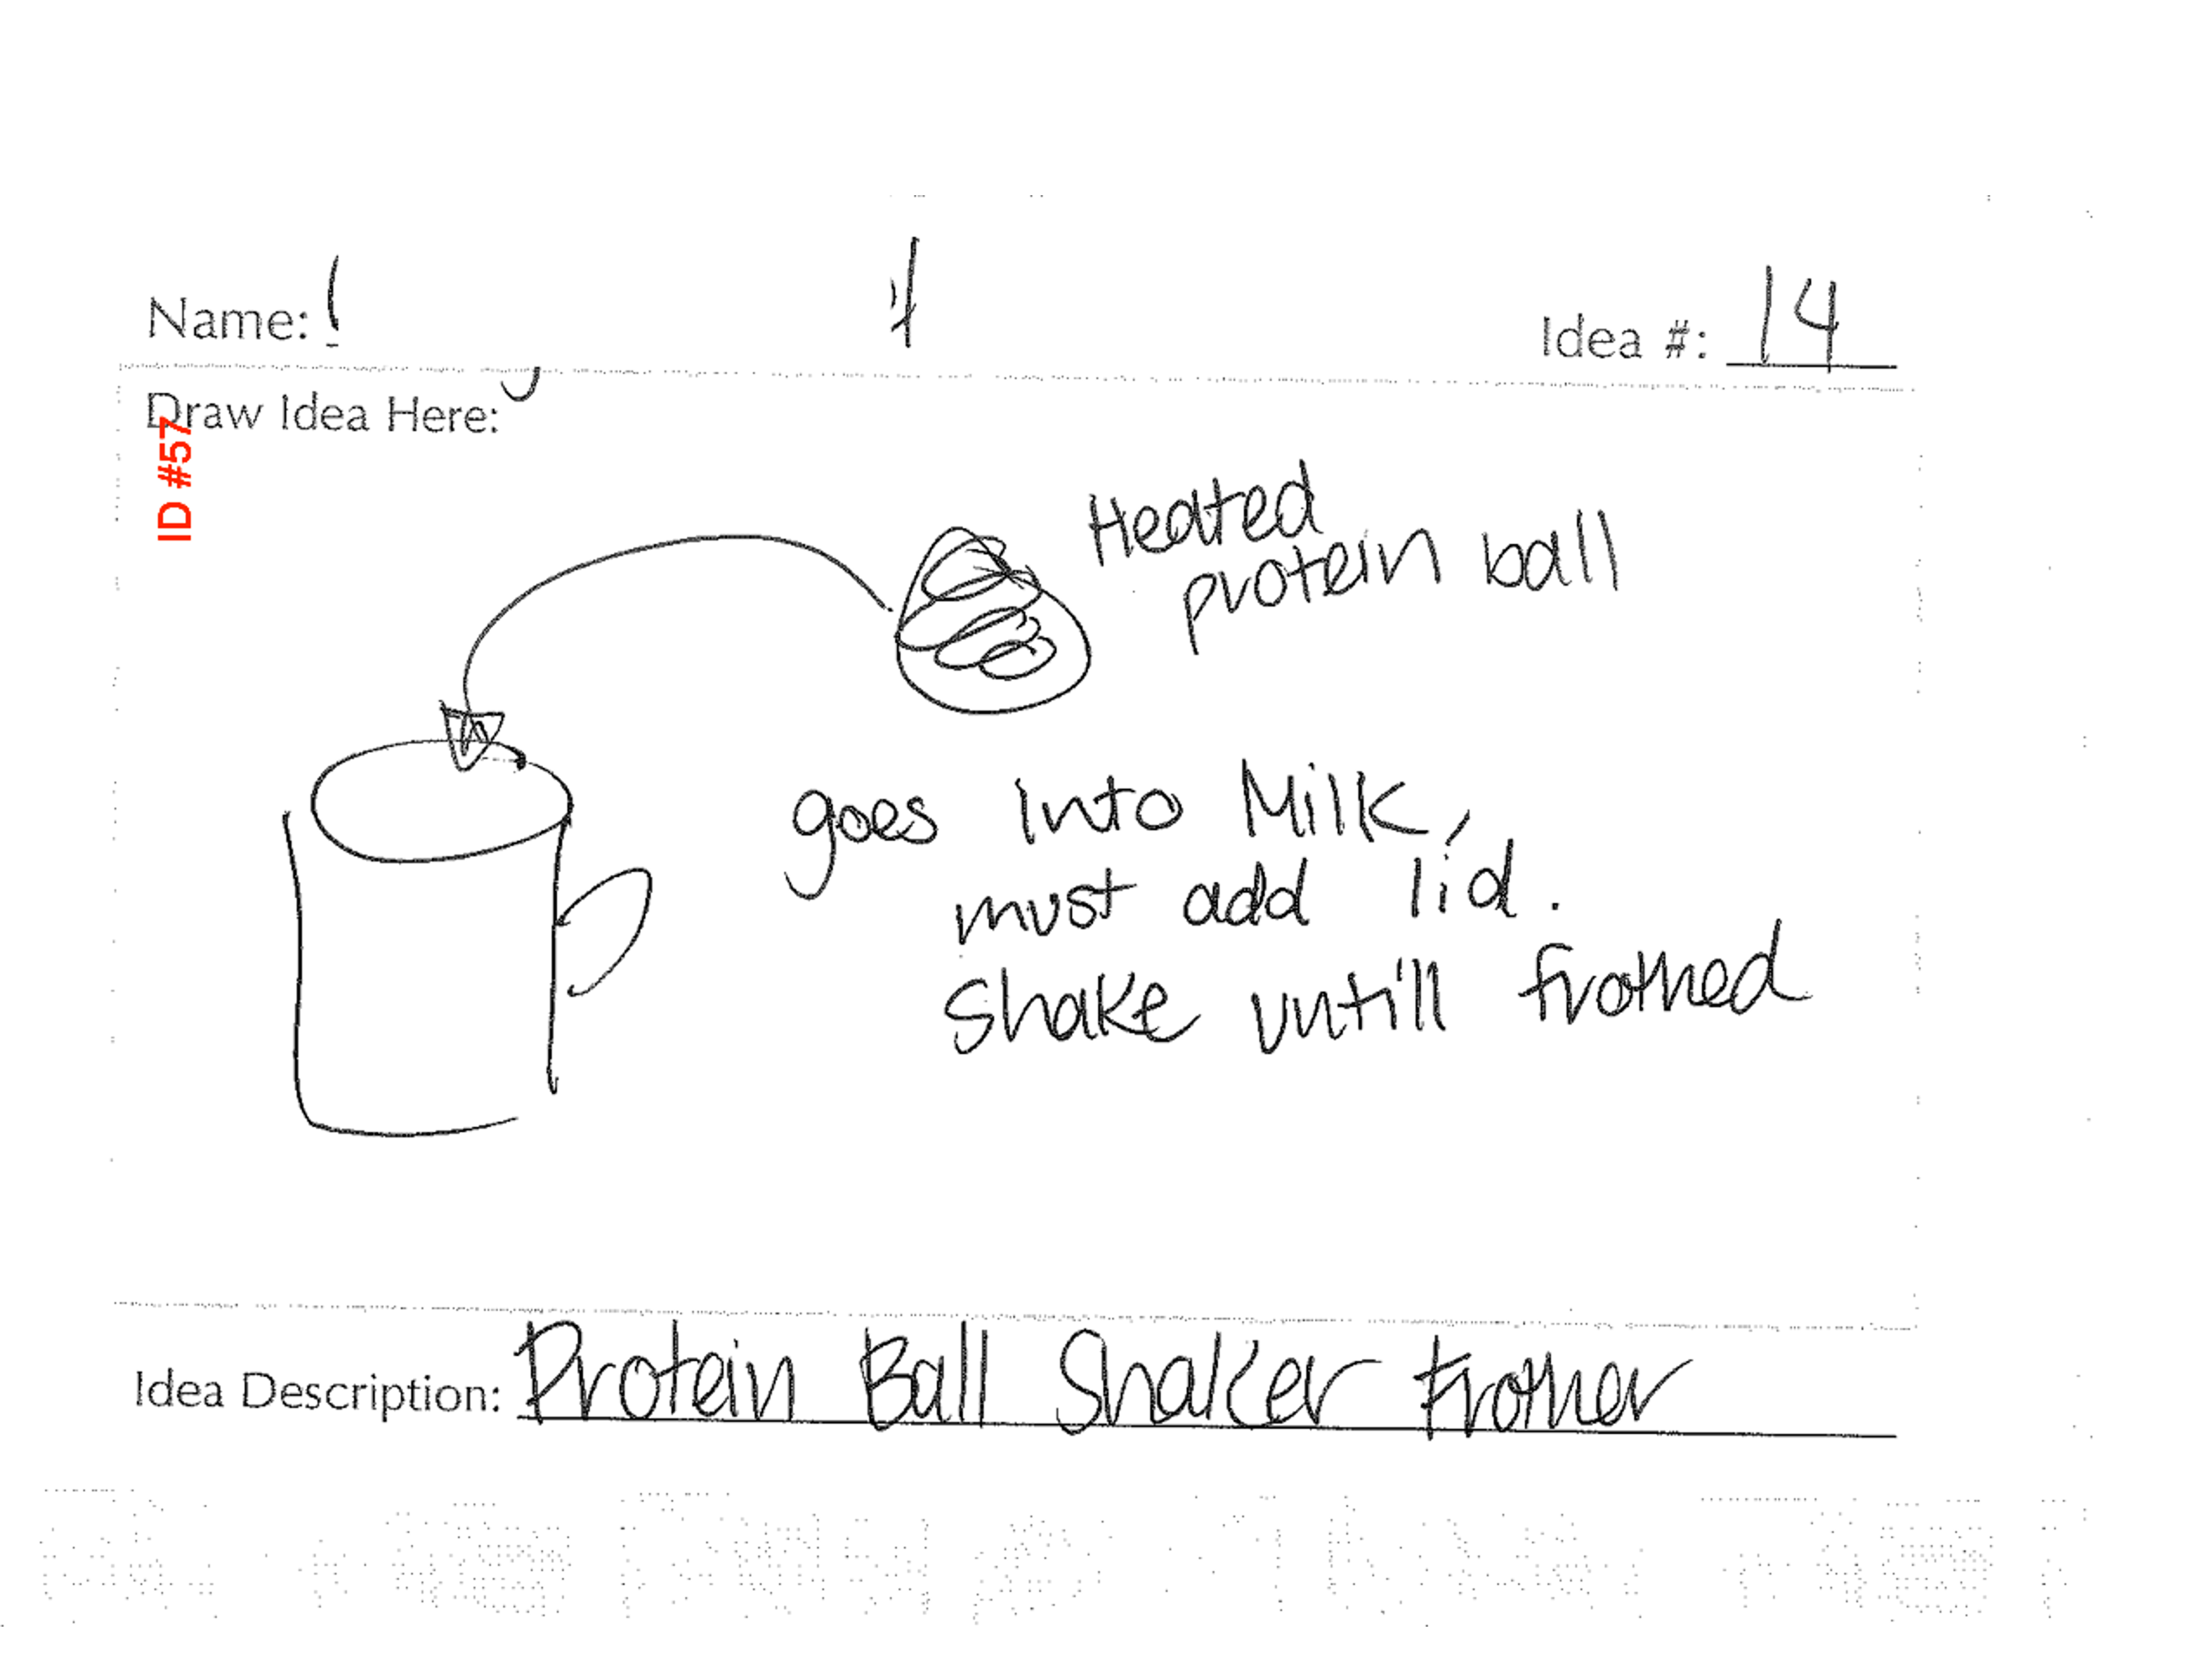 Name:
Idea #: 14
Draw Idea Here:
ID #57
Heated
protein ball
goes into Milk,
must add lid.
Shake untill frothed
Idea Description: Protein Ball Shaker Frother